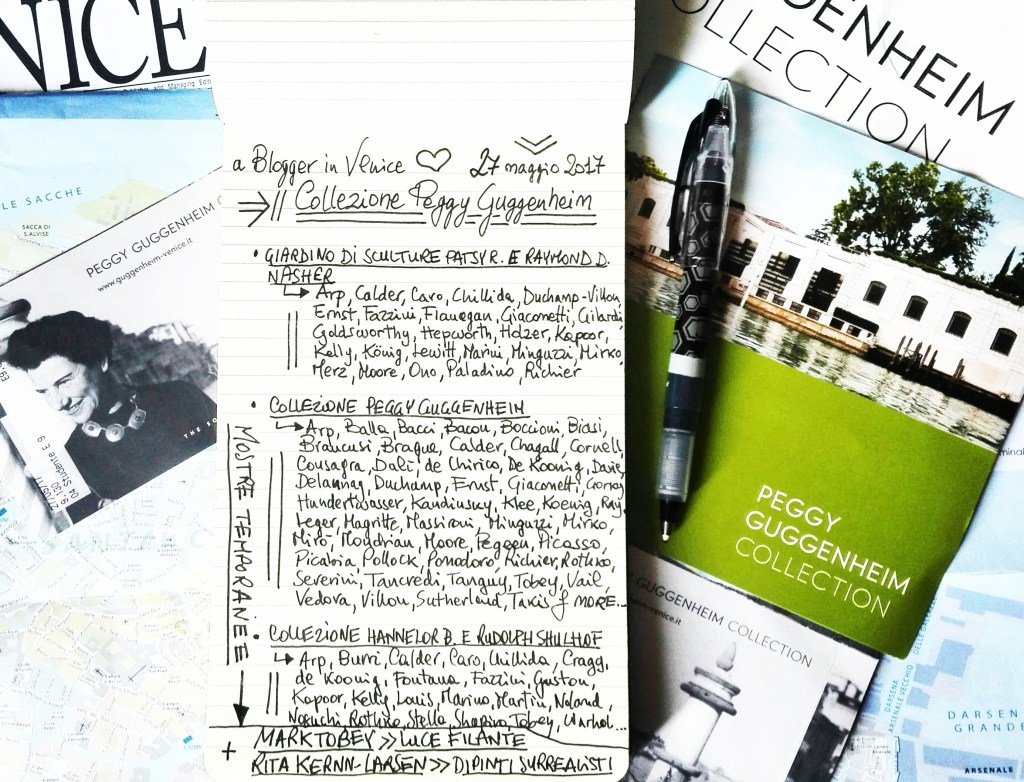 NICE
Managing Edi
LE SACCHE
SACCA DI
S.ALVISE
PEGGY GUGGENHEIM C
www.guggenheim-venice.it
THE SO
04 Studente E 9
a Blogger in Venice ♡ 27 maggio 2017
⇒ // Collezione Peggy Guggenheim
• GIARDINO DI SCULTURE PATSY R. E RAYMOND D.
NASHER
↳ Arp, Calder, Caro, Chillida, Duchamp-Villon,
Ernst, Fazzini, Flanegan, Giacometti, Gilardi
Goldsworthy, Hepworth, Holzer, Kapoor,
Kelly, König, Lewitt, Marini, Minguzzi, Mirko
Merz, Moore, Ono, Paladino, Richier
• COLLEZIONE PEGGY GUGGENHEIM
↳ Arp, Balla, Bacci, Bacon, Boccioni, Biasi,
Brancusi, Braque, Calder, Chagall, Cornell
Consagra, Dalì, de Chirico, De Kooning, Davie,
Delaunay, Duchamp, Ernst, Giacometti, Gorky
Hundertwasser, Kandinsky, Klee, Koenig, Ray,
Leger, Magritte, Massironi, Minguzzi, Mirko
Mirò, Mondrian, Moore, Pegeen, Picasso,
Picabia, Pollock, Pomodoro, Richier, Rothko,
Severini, Tancredi, Tanguy, Tobey, Vail,
Vedova, Villon, Sutherland, Takis & MORE...
• COLLEZIONE HANNELOR B. E RUDOLPH SHULHOF
↳ Arp, Burri, Calder, Caro, Chillida, Cragg,
de Kooning, Fontana, Fazzini, Guston,
Kapoor, Kelly, Louis, Marino, Martin, Noland,
Noguchi, Rothko, Stella, Shapiro, Tobey, Warhol...
MOSTRE TEMPORANEE
+ MARK TOBEY >> LUCE FILANTE
RITA KERNN-LARSEN >> DIPINTI SURREALISTI
GENHEIM
OLLECTION
PEGGY
GUGGENHEIM
COLLECTION
GUGGENHEIM COLLECTION
m-venice.it
DARSENA
ARSENALE VECCHIO
DARSEN
GRANDE
ARSENALE